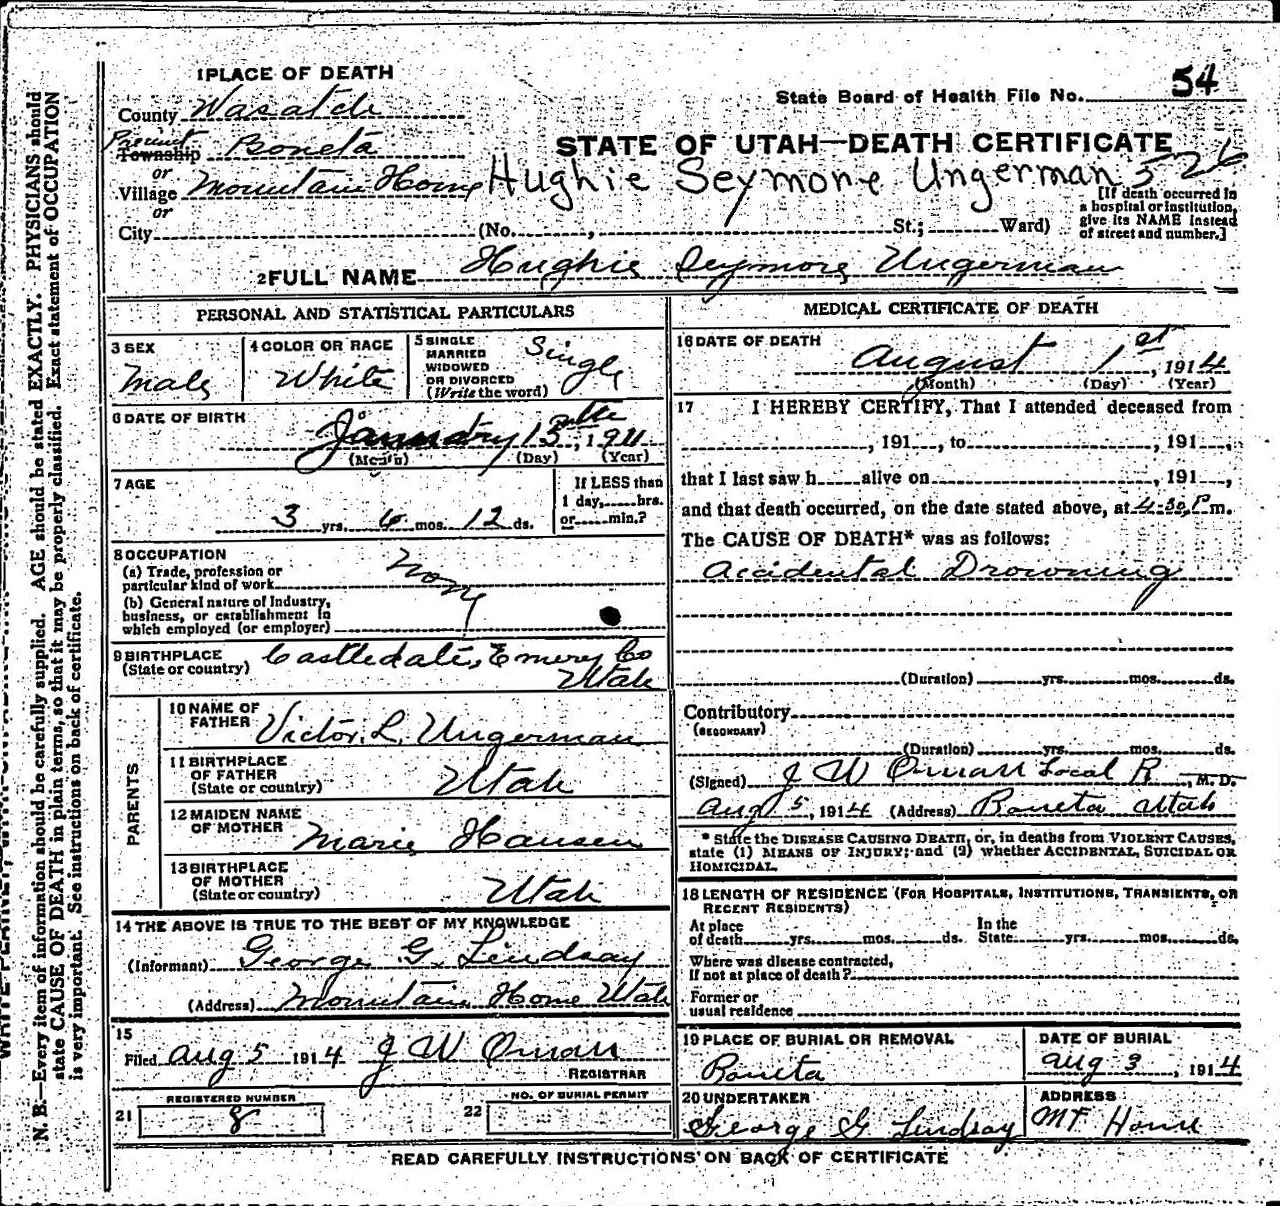 1 PLACE OF DEATH
County Wasatch
State Board of Health File No. 54
Precinct Township Boneta
STATE OF UTAH—DEATH CERTIFICATE
or
Village Mountain Home
Hughie Seymore Ungerman 526
or
City (No. , St.; Ward)
[If death occurred in
a hospital or institution,
give its NAME instead
of street and number.]
2 FULL NAME Hughie Seymore Ungerman
PERSONAL AND STATISTICAL PARTICULARS
3 SEX
Male
4 COLOR OR RACE
White
5 SINGLE
MARRIED
WIDOWED
OR DIVORCED
(Write the word)
Single
6 DATE OF BIRTH
January 15, 1911
(Month) (Day) (Year)
7 AGE
3 yrs. 6 mos. 12 ds.
If LESS than
1 day, hrs.
or min.?
8 OCCUPATION
(a) Trade, profession or
particular kind of work
None
(b) General nature of Industry,
business, or establishment in
which employed (or employer)
9 BIRTHPLACE
(State or country)
Castledale, Emery Co
Utah
PARENTS
10 NAME OF
FATHER
Victor. L. Ungerman
11 BIRTHPLACE
OF FATHER
(State or country)
Utah
12 MAIDEN NAME
OF MOTHER
Marie Hansen
13 BIRTHPLACE
OF MOTHER
(State or country)
Utah
14 THE ABOVE IS TRUE TO THE BEST OF MY KNOWLEDGE
(Informant) George G. Lindsay
(Address) Mountain Home Utah
15
Filed Aug 5 1914 J W Oman
REGISTRAR
REGISTERED NUMBER
21 8
NO. OF BURIAL PERMIT
22
MEDICAL CERTIFICATE OF DEATH
16 DATE OF DEATH
August 1st, 1914
(Month) (Day) (Year)
17 I HEREBY CERTIFY, That I attended deceased from
, 191 , to , 191 ,
that I last saw h alive on , 191 ,
and that death occurred, on the date stated above, at 4:30 P m.
The CAUSE OF DEATH* was as follows:
Accidental Drowning
(Duration) yrs. mos. ds.
Contributory
(SECONDARY)
(Duration) yrs. mos. ds.
(Signed) J W Oman Local R M. D.
Aug 5, 1914 (Address) Boneta Utah
* State the DISEASE CAUSING DEATH, or, in deaths from VIOLENT CAUSES,
state (1) MEANS OF INJURY; and (2) whether ACCIDENTAL, SUICIDAL OR
HOMICIDAL.
18 LENGTH OF RESIDENCE (FOR HOSPITALS, INSTITUTIONS, TRANSIENTS, OR
RECENT RESIDENTS)
At place
of death yrs. mos. ds.
In the
State yrs. mos. ds.
Where was disease contracted,
if not at place of death?
Former or
usual residence
19 PLACE OF BURIAL OR REMOVAL
Boneta
DATE OF BURIAL
Aug 3, 1914
20 UNDERTAKER
George G Lindsay
ADDRESS
Mt Home
READ CAREFULLY INSTRUCTIONS ON BACK OF CERTIFICATE
N. B.—Every item of information should be carefully supplied. AGE should be stated EXACTLY. PHYSICIANS should
state CAUSE OF DEATH in plain terms, so that it may be properly classified. Exact statement of OCCUPATION
is very important. See instructions on back of certificate.